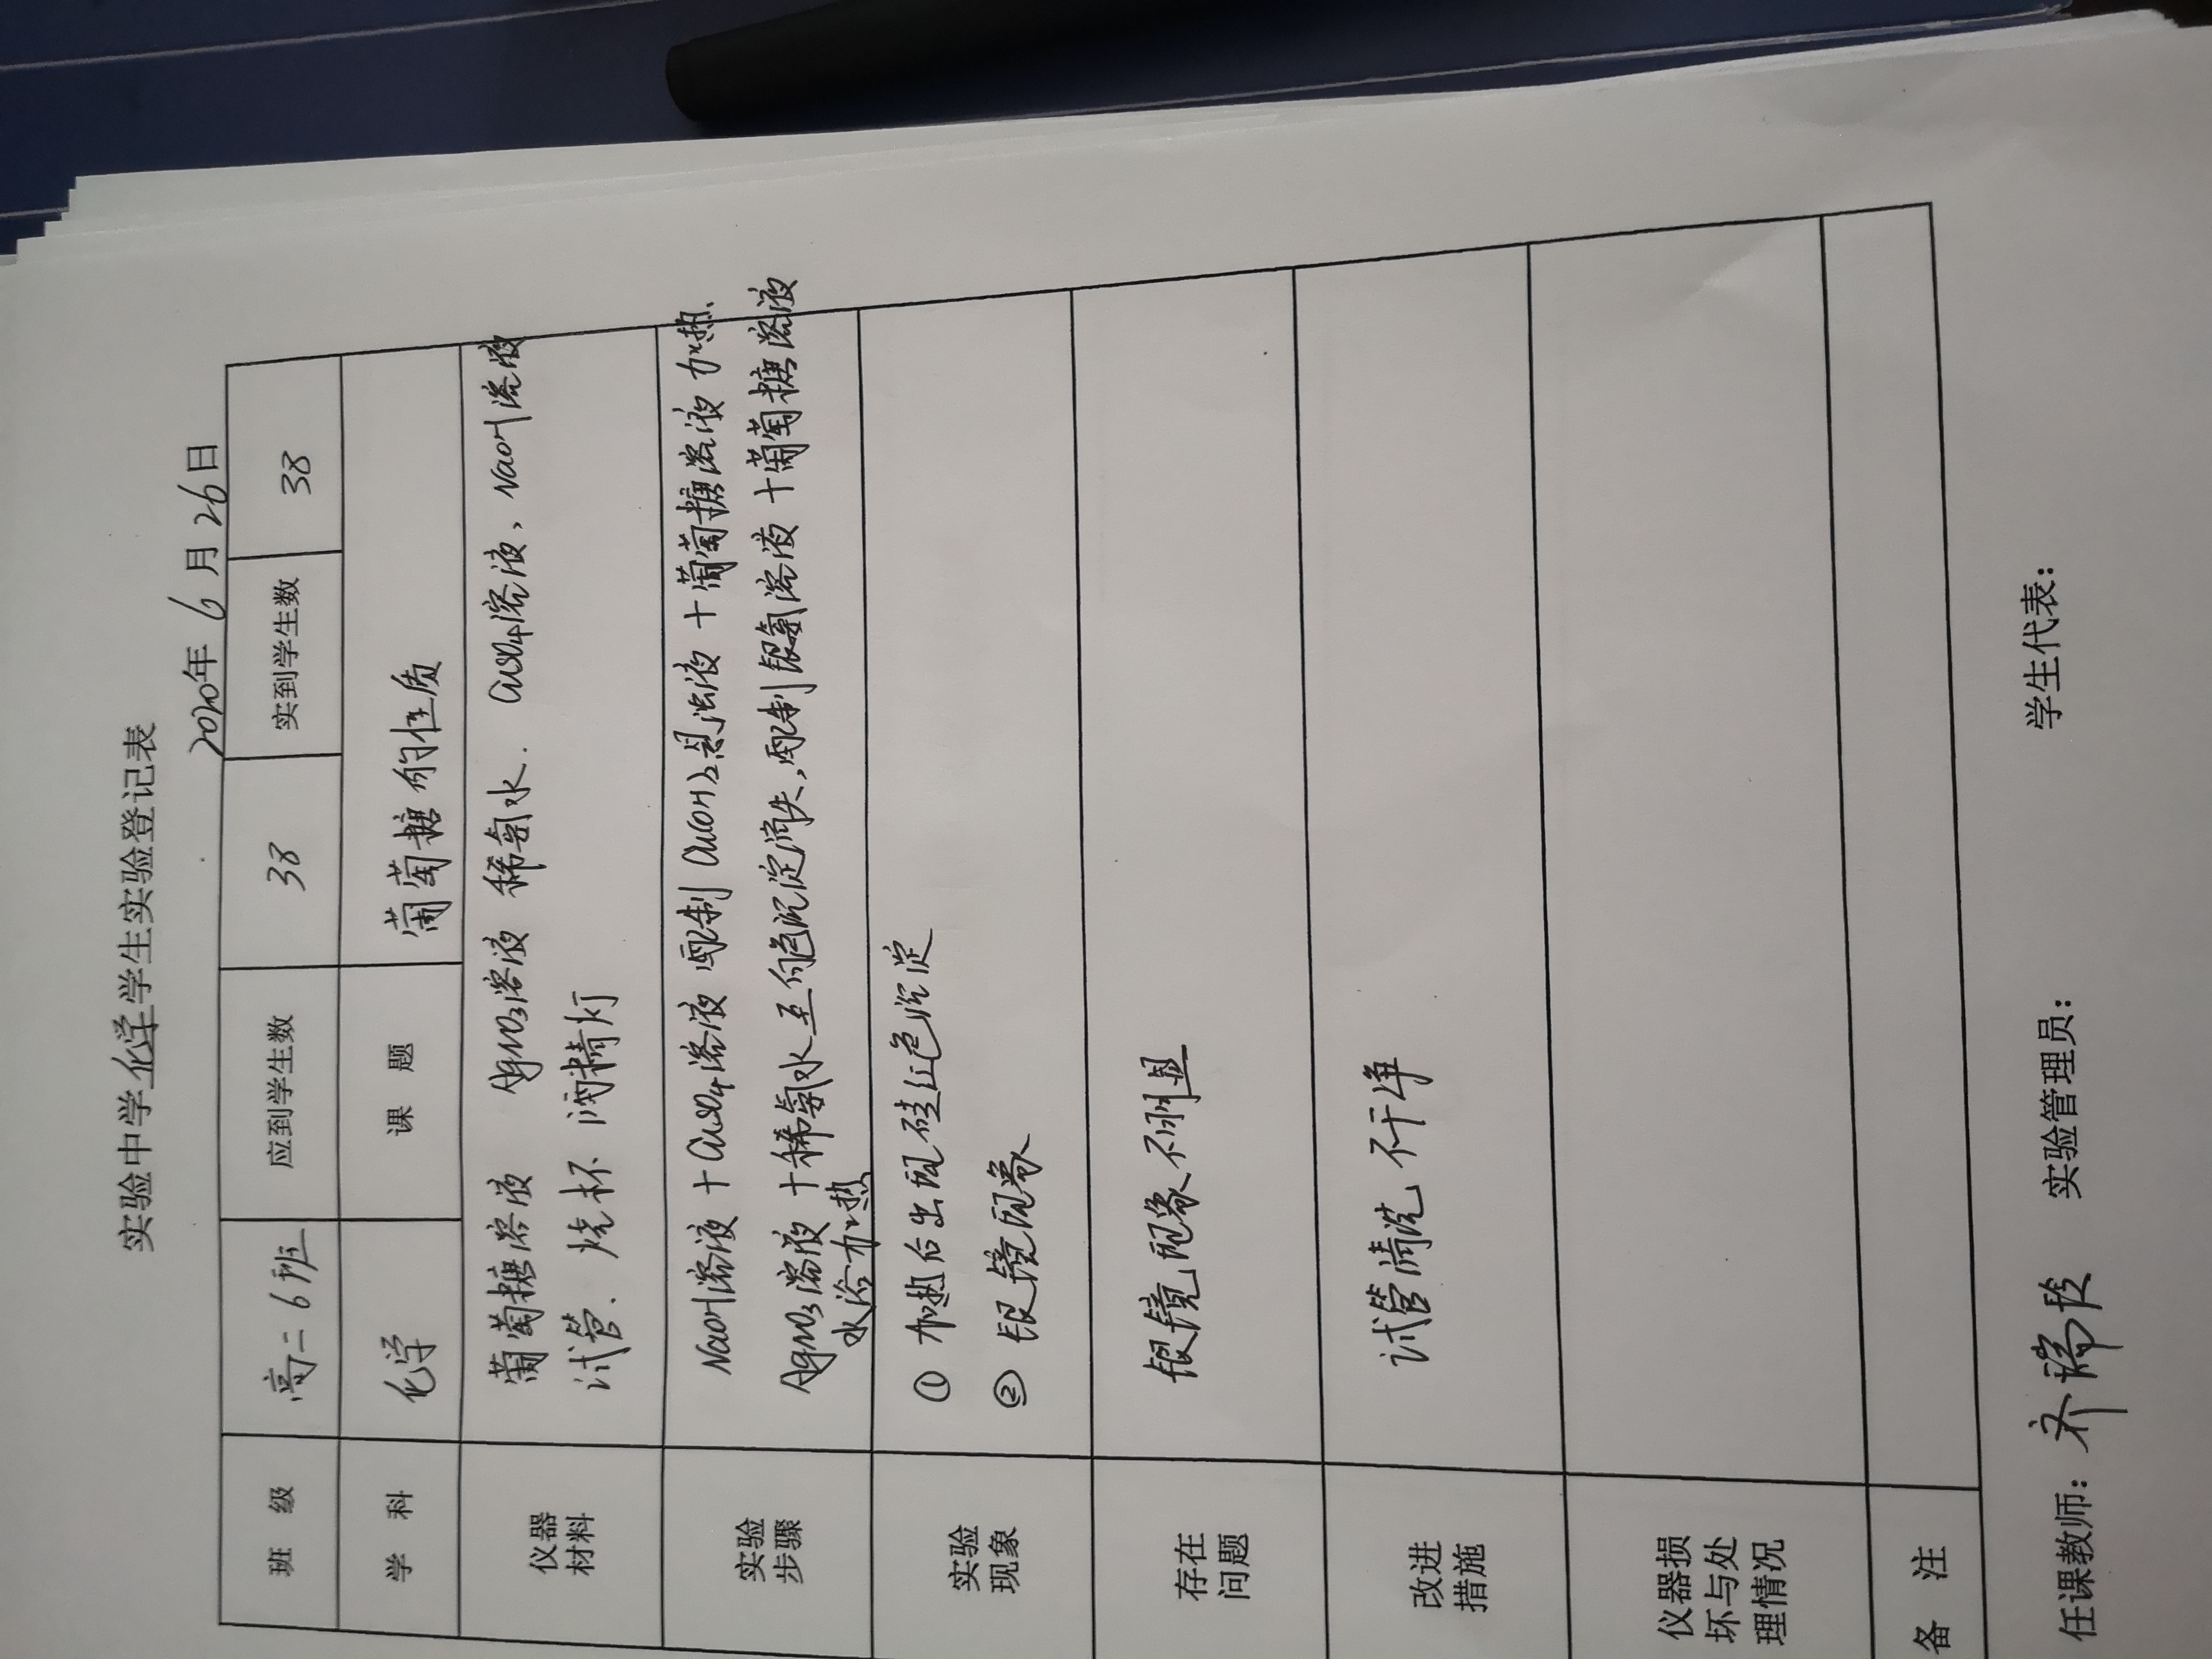 实验中学化学学生实验登记表
2020年 6 月 26日
班 级 高二6班 应到学生数 38 实到学生数 38
学 科 化学 课 题 葡萄糖的性质
仪器
材料
葡萄糖溶液 AgNO3溶液 稀氨水. CuSO4溶液、NaOH溶液
试管. 烧杯 酒精灯
实验
步骤
NaOH溶液 + CuSO4溶液 配制 Cu(OH)2悬浊液 + 葡萄糖溶液 加热.
AgNO3溶液 + 稀氨水 至 白色沉淀消失, 配制银氨溶液 + 葡萄糖溶液
水浴加热
实验
现象
① 加热后出现砖红色沉淀
② 银镜现象
存在
问题
银镜现象不明显
改进
措施
试管清洗不干净
仪器损
坏与处
理情况
备 注
任课教师: 齐瑞 实验管理员: 学生代表: